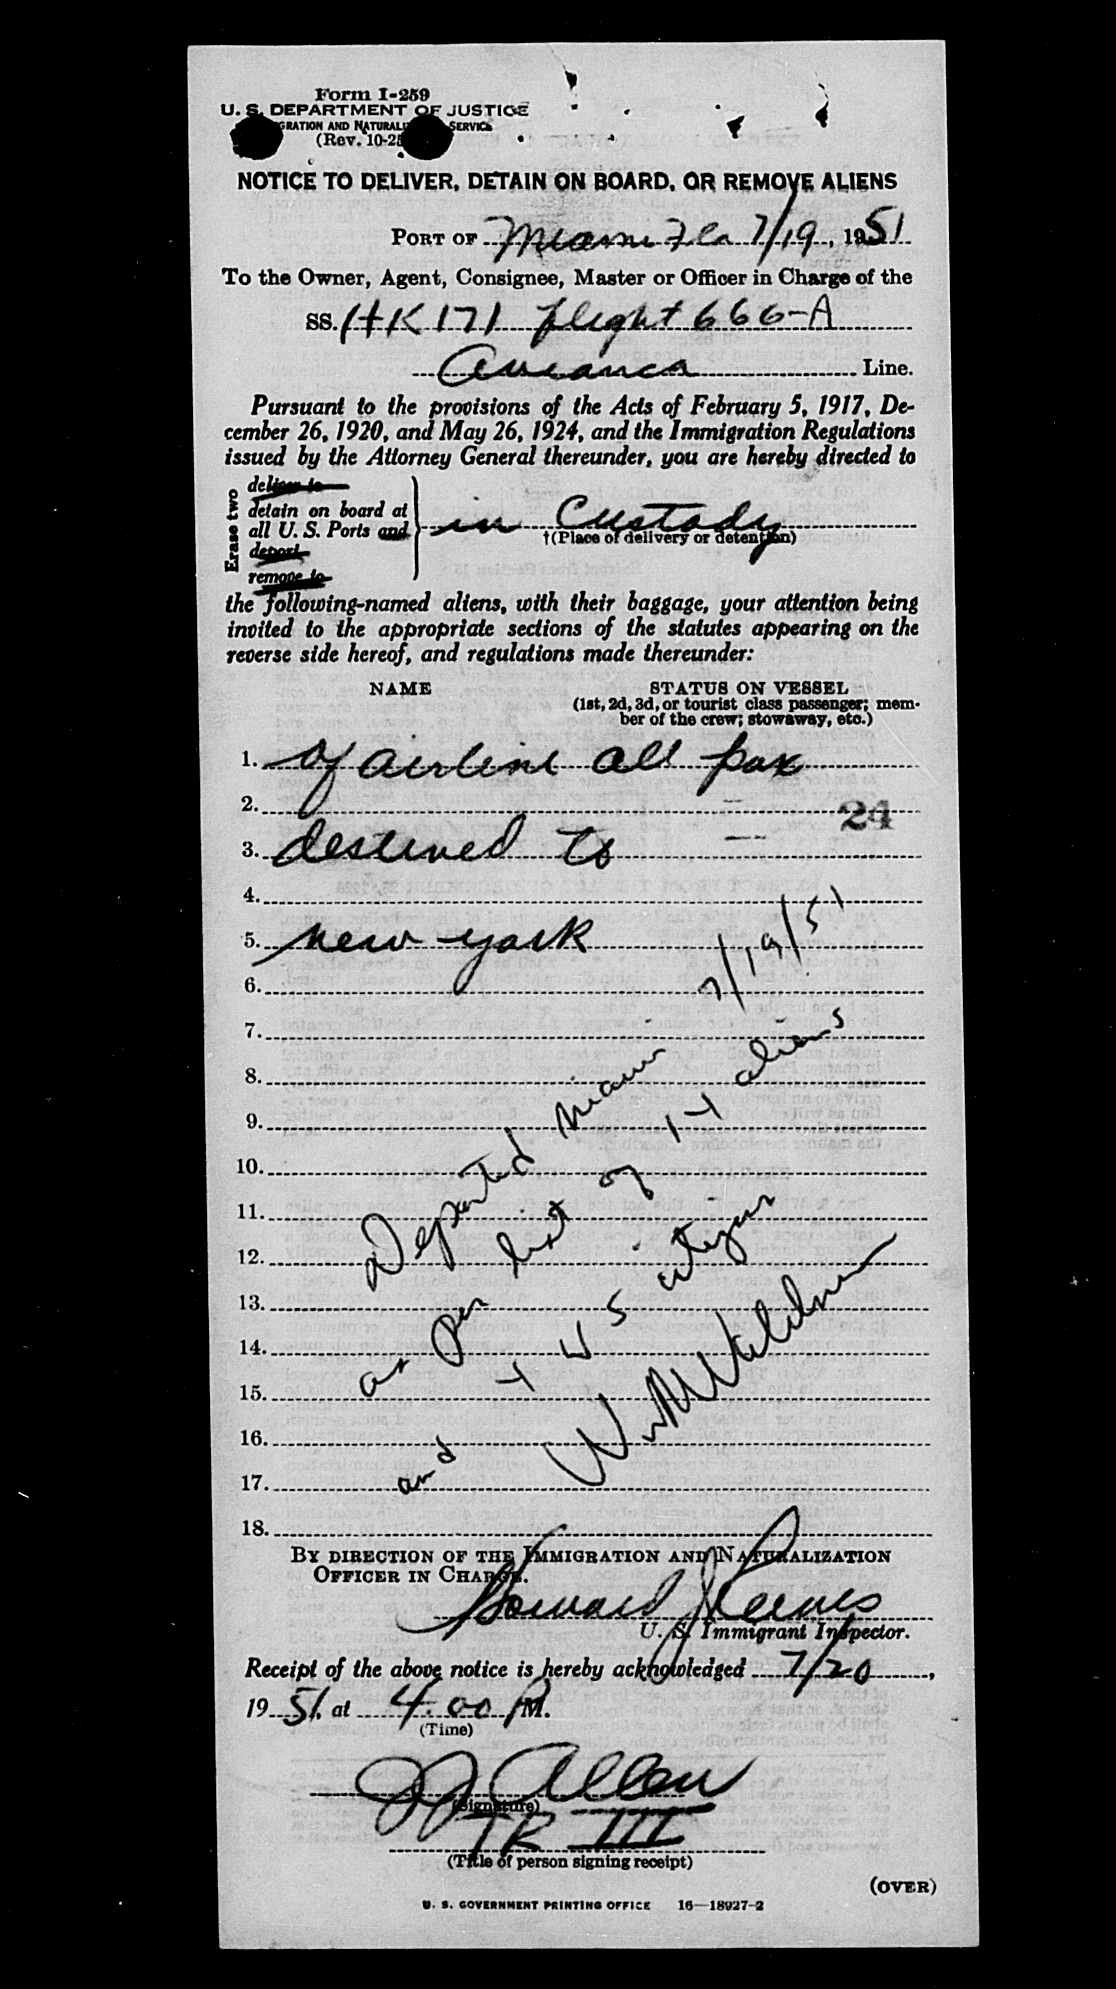 Form I-259
U. S. DEPARTMENT OF JUSTICE
GRATION AND NATURALI SERVICE
(Rev. 10-2
NOTICE TO DELIVER, DETAIN ON BOARD, OR REMOVE ALIENS
PORT OF Miami Fla 7/19, 1951
To the Owner, Agent, Consignee, Master or Officer in Charge of the
SS. HK171 flight 666-A
Avianca Line.
Pursuant to the provisions of the Acts of February 5, 1917, De-
cember 26, 1920, and May 26, 1924, and the Immigration Regulations
issued by the Attorney General thereunder, you are hereby directed to
Erase two
deliver to
detain on board at
all U. S. Ports and
deport
remove to
in Custody
†(Place of delivery or detention)
the following-named aliens, with their baggage, your attention being
invited to the appropriate sections of the statutes appearing on the
reverse side hereof, and regulations made thereunder:
NAME STATUS ON VESSEL
(1st, 2d, 3d, or tourist class passenger; mem-
ber of the crew; stowaway, etc.)
1. of airline all pax
2. 24
3. destined to
4.
5. new york
6.
7.
8.
9.
10.
11.
12.
13.
14.
15.
16.
17.
18.
7/19/51
Departed Miami
as per list of 14 aliens
and 4 U S citizens
BY DIRECTION OF THE IMMIGRATION AND NATURALIZATION
OFFICER IN CHARGE.
Howard J Reeves
U. S. Immigrant Inspector.
Receipt of the above notice is hereby acknowledged 7/20,
1951, at 4.00 P M.
(Time)
JJ Allen
(Signature)
TR III
(Title of person signing receipt)
(OVER)
U. S. GOVERNMENT PRINTING OFFICE 16—18927-2